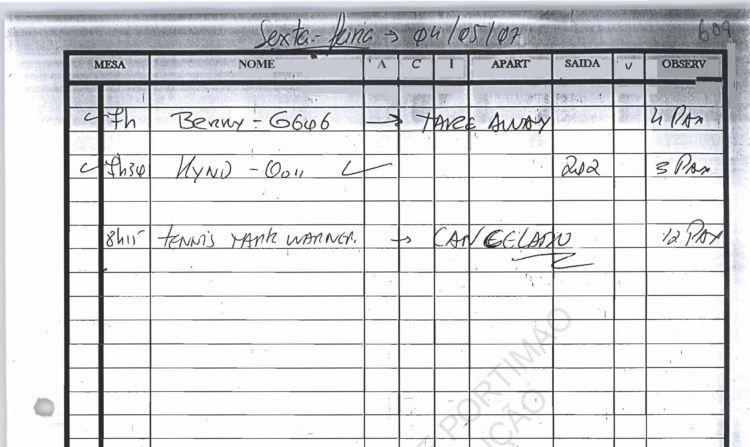 Sexta-feira → 04/05/07
609
MESA NOME A C I APART SAIDA V OBSERV
7h Berry - G6406 → TAKE AWAY 4 PAX
7h30 HYND - 0011 202 3 PAX
8h15 TENNIS MARK WARNER. → CANCELADO 12 PAX
PORTIMAO
ÇÃO